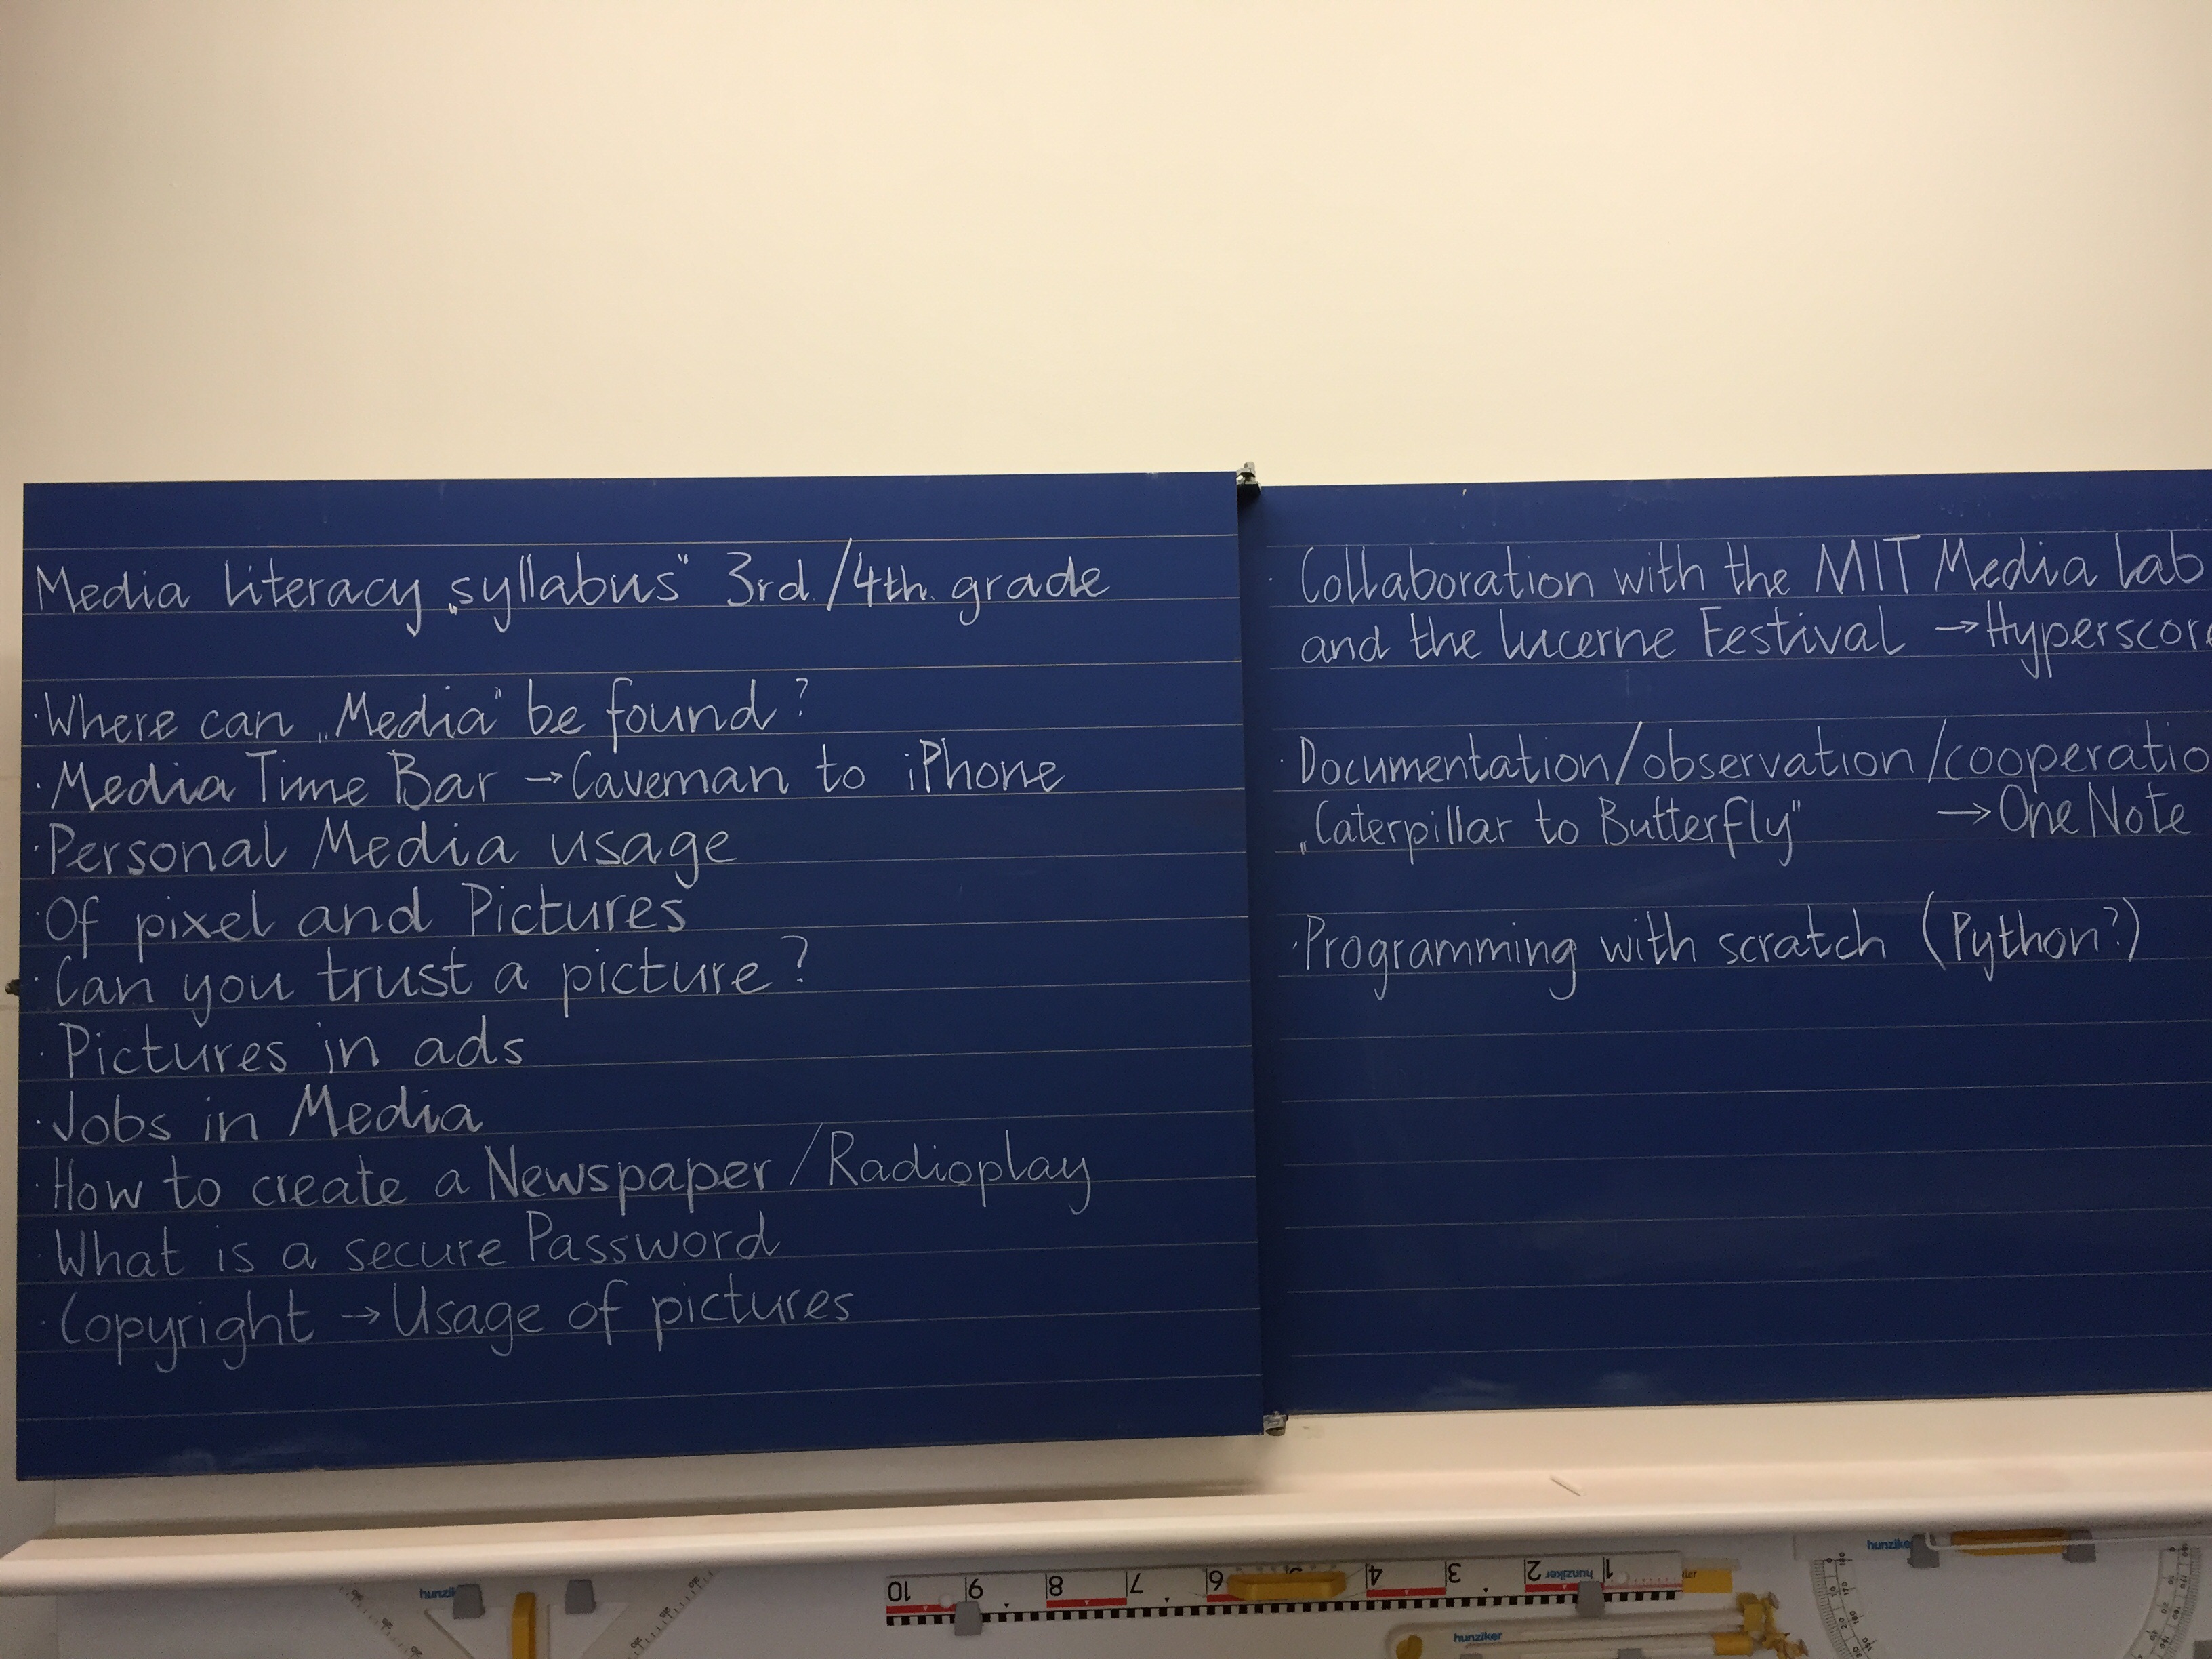 Media Literacy „syllabus" 3rd./4th. grade
·Where can „Media" be found?
·Media Time Bar →Caveman to iPhone
·Personal Media usage
·Of pixel and Pictures
·Can you trust a picture?
·Pictures in ads
·Jobs in Media
·How to create a Newspaper/Radioplay
·What is a secure Password
·Copyright →Usage of pictures
· Collaboration with the MIT Media Lab
and the Lucerne Festival →Hyperscor
·Documentation/observation/cooperatio
„Caterpillar to Butterfly" →OneNote
·Programming with scratch (Python?)
hunziker
10 9 8 7 6 5 4 3 2 1
hunziker
hunziker
hunziker